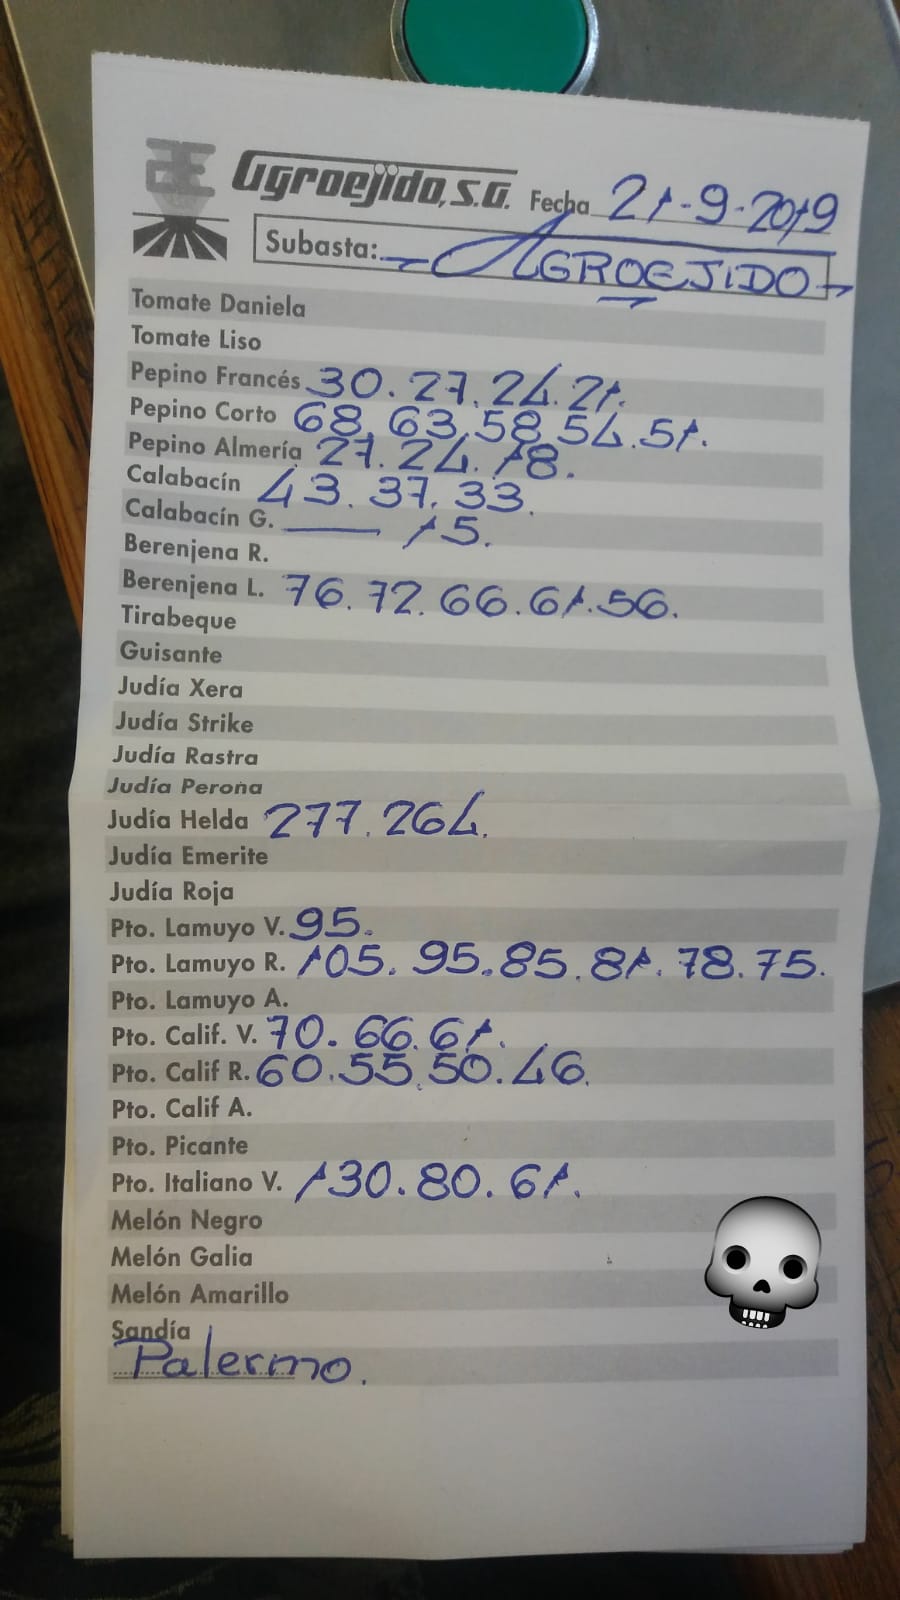 Agroejido, S.G. Fecha 21-9-2019
Subasta: AGROEJIDO
Tomate Daniela
Tomate Liso
Pepino Francés 30. 27. 24. 21.
Pepino Corto 68. 63. 58. 54. 51.
Pepino Almería 27. 24. 18.
Calabacín 43. 37. 33.
Calabacín G. — 15.
Berenjena R.
Berenjena L. 76. 72. 66. 61. 56.
Tirabeque
Guisante
Judía Xera
Judía Strike
Judía Rastra
Judía Perona
Judía Helda 277. 264.
Judía Emerite
Judía Roja
Pto. Lamuyo V. 95.
Pto. Lamuyo R. 105. 95. 85. 81. 78. 75.
Pto. Lamuyo A.
Pto. Calif. V. 70. 66. 61.
Pto. Calif R. 60. 55. 50. 46.
Pto. Calif A.
Pto. Picante
Pto. Italiano V. 130. 80. 61.
Melón Negro
Melón Galia
Melón Amarillo
Sandía
Palermo.